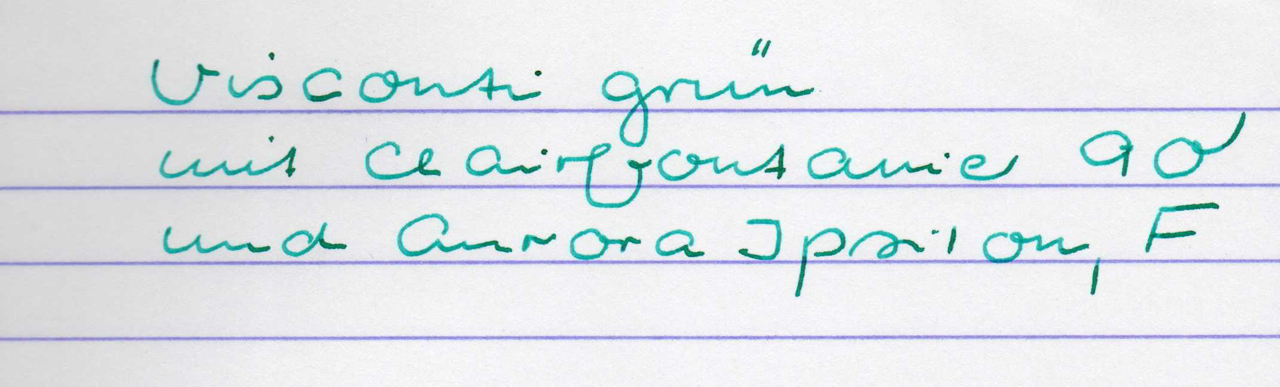 Visconti grün
mit Clairfontaine 90
und Aurora Ipsilon, F